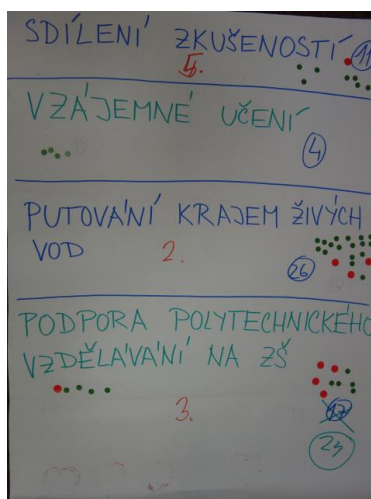 SDÍLENÍ ZKUŠENOSTÍ 11
4.
VZÁJEMNÉ UČENÍ
4
PUTOVÁNÍ KRAJEM ŽIVÝCH
VOD 2. 26
PODPORA POLYTECHNICKÉHO
VZDĚLÁVÁNÍ NA ZŠ
3. 17
24